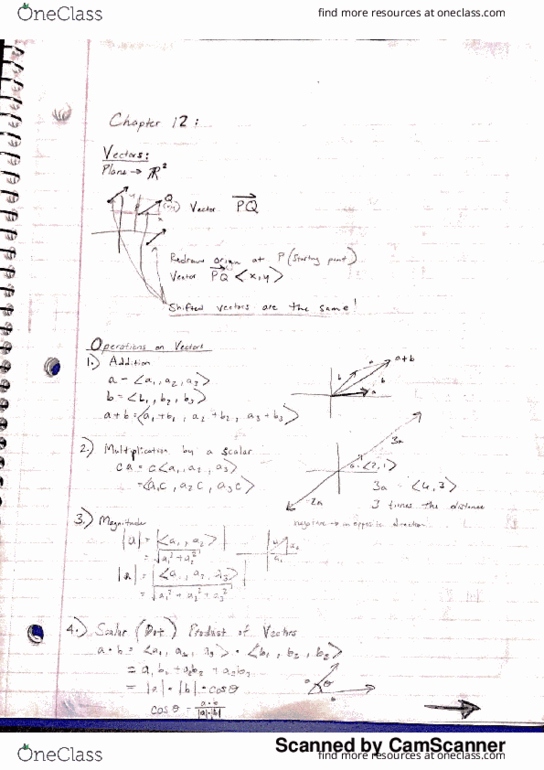 OneClass
find more resources at oneclass.com
Chapter 12:
Vectors:
Plane → ℝ²
Q
Vector PQ
Redrawn origin at P (starting point)
Vector PQ <x,y>
Shifted vectors are the same!
Operations on Vectors
1.) Addition
a = <a₁, a₂, a₃>
b = <b₁, b₂, b₃>
a+b = <a₁+b₁, a₂+b₂, a₃+b₃>
b a a+b
b
a
2.) Multiplication by a scalar
ca = c<a₁, a₂, a₃>
= <a₁c, a₂c, a₃c>
3a
<2,1>
-2a
3 times the distance
negative → in opposite direction
3.) Magnitude
|a| = |<a₁, a₂>|
= √a₁² + a₂²
|a| = |<a₁, a₂, a₃>|
= √a₁² + a₂² + a₃²
a a₂
a₁
4.) Scalar (Dot) Product of Vectors
a · b = <a₁, a₂, a₃> · <b₁, b₂, b₃>
= a₁b₁ + a₂b₂ + a₃b₃
= |a| · |b| · cosθ
cosθ = a·b / |a|·|b|
a θ
b
Scanned by CamScanner
OneClass
find more resources at oneclass.com